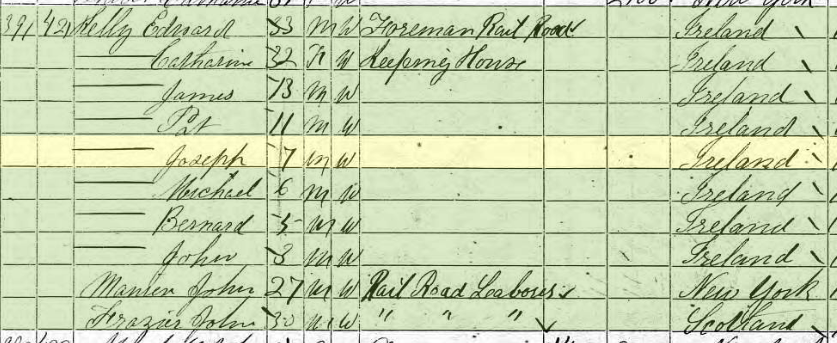 391 421 Kelly Edward 33 M W Foreman Rail Road Ireland
Catharine 32 F W Keeping House Ireland
James 13 M W Ireland
Pat 11 M W Ireland
Joseph 7 M W Ireland
Michael 6 M W Ireland
Bernard 5 M W Ireland
John 3 M W Ireland
John 27 M W Rail Road Laborer New York
Frazier John 30 M W " " " Scotland